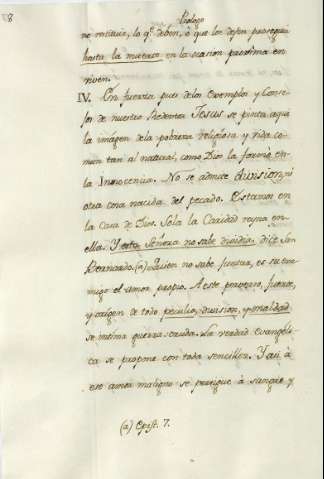 8
Prologo
no restituir, lo q.e deben, ò que los dejen proseguir
hasta la muerte en la ocasion proxima en
viven.
IV. En fuerza pues de los Exemplos y Conse-
jos de nuestro Redentor Jesus se pinta aqui
la imágen de la pobreza religiosa y vida co-
mun tan al natural, como Dios la formò en
la Innocencia. No se admite division, ni
otra cosa nacida del pecado. Estamos en
la Casa de Dios. Sola la Caridad reyna en-
ella. Y esta Señora no sabe dividir, dice San
Bernardo. (a) Quien no sabe juntar, es su ene-
migo el amor propio. A este protervo, fuente,
y origen de todo peculio, division, y maldad
se intima guerra cruda. La verdad evangéli-
ca se propone con toda sencillez. Y asi à
ese amor maligno se persigue à sangre y
(a) Epist. 7.